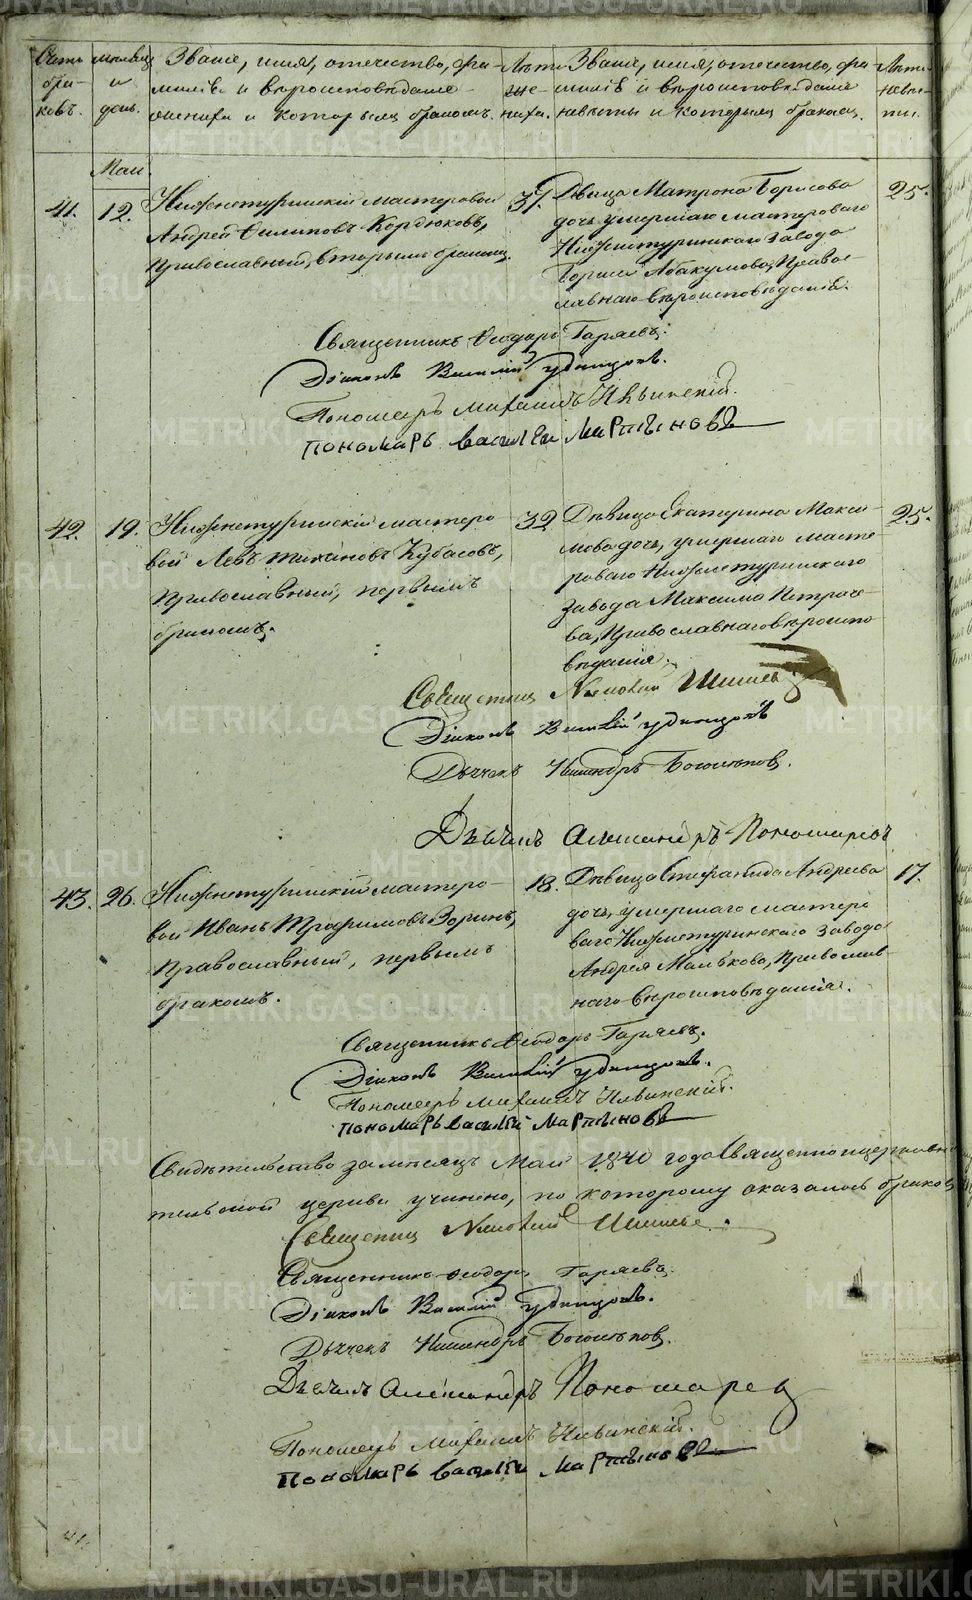 Счетъ браковъ.
Мѣсяцъ и день.
Званіе, имя, отчество, фамилія и вѣроисповѣданіе жениха и которымъ бракомъ.
Лѣта жениха.
Званіе, имя, отчество, фамилія и вѣроисповѣданіе невѣсты и которымъ бракомъ.
Лѣта невѣсты.
Маій.
41. 12.
Нижнетуринскій мастеровой
Андрей Филиповъ Кордюковъ,
православный, вторымъ бракомъ.
37.
Дѣвица Матрона Борисова
дочь умершаго мастероваго
Нижнетуринскаго завода
Бориса Абакумова, Правос-
лавнаго вѣроисповѣданія.
25.
Священникъ Ѳеодоръ Гаряевъ.
Діаконъ Василій Удинцовъ.
Пономарь Михаилъ Ивинскій.
Пономарь Василій Мартыновъ
42. 19.
Нижнетуринскій мастеро-
вой Левъ Тихановъ Кубасовъ,
православный, первымъ
бракомъ.
32.
Дѣвица Екатерина Макси-
мова дочь, умершаго масте-
роваго Нижнетуринскаго
завода Максима Петрое-
ва, Православнаго вѣроиспо-
вѣданія.
25.
Священник
Діаконъ Василій Удинцовъ
Дьячекъ Никандръ Богословов.
Дьячекъ Александръ Пономаревъ
43. 26.
Нижнетуринскій мастеро-
вой Иванъ Трофимовъ Зоринъ,
православный, первымъ
бракомъ.
18.
Дѣвица Стефанида Андреева
дочь, умершаго мастеро
ваго Нижнетуринскаго завода
Андрея Малькова, Православ-
наго вѣроисповѣданія.
17.
Священникъ Ѳеодоръ Гаряевъ.
Діаконъ Василій Удинцовъ.
Пономарь Михаилъ Ивинскій.
Пономарь Василій Мартыновъ
Свидѣтельство за мѣсяцъ Маій 1840 года Священноцерковнослужи-
тельской церкви учинено, по которому оказалось браковъ
Священник
Священникъ Ѳеодоръ Гаряевъ.
Діаконъ Василій Удинцовъ.
Дьячекъ Никандръ Богословов.
Дьячекъ Александръ Пономарев
Пономарь Михаилъ Ивинскій.
Пономарь Василій Мартыновъ
METRIKI.GASO-URAL.RU